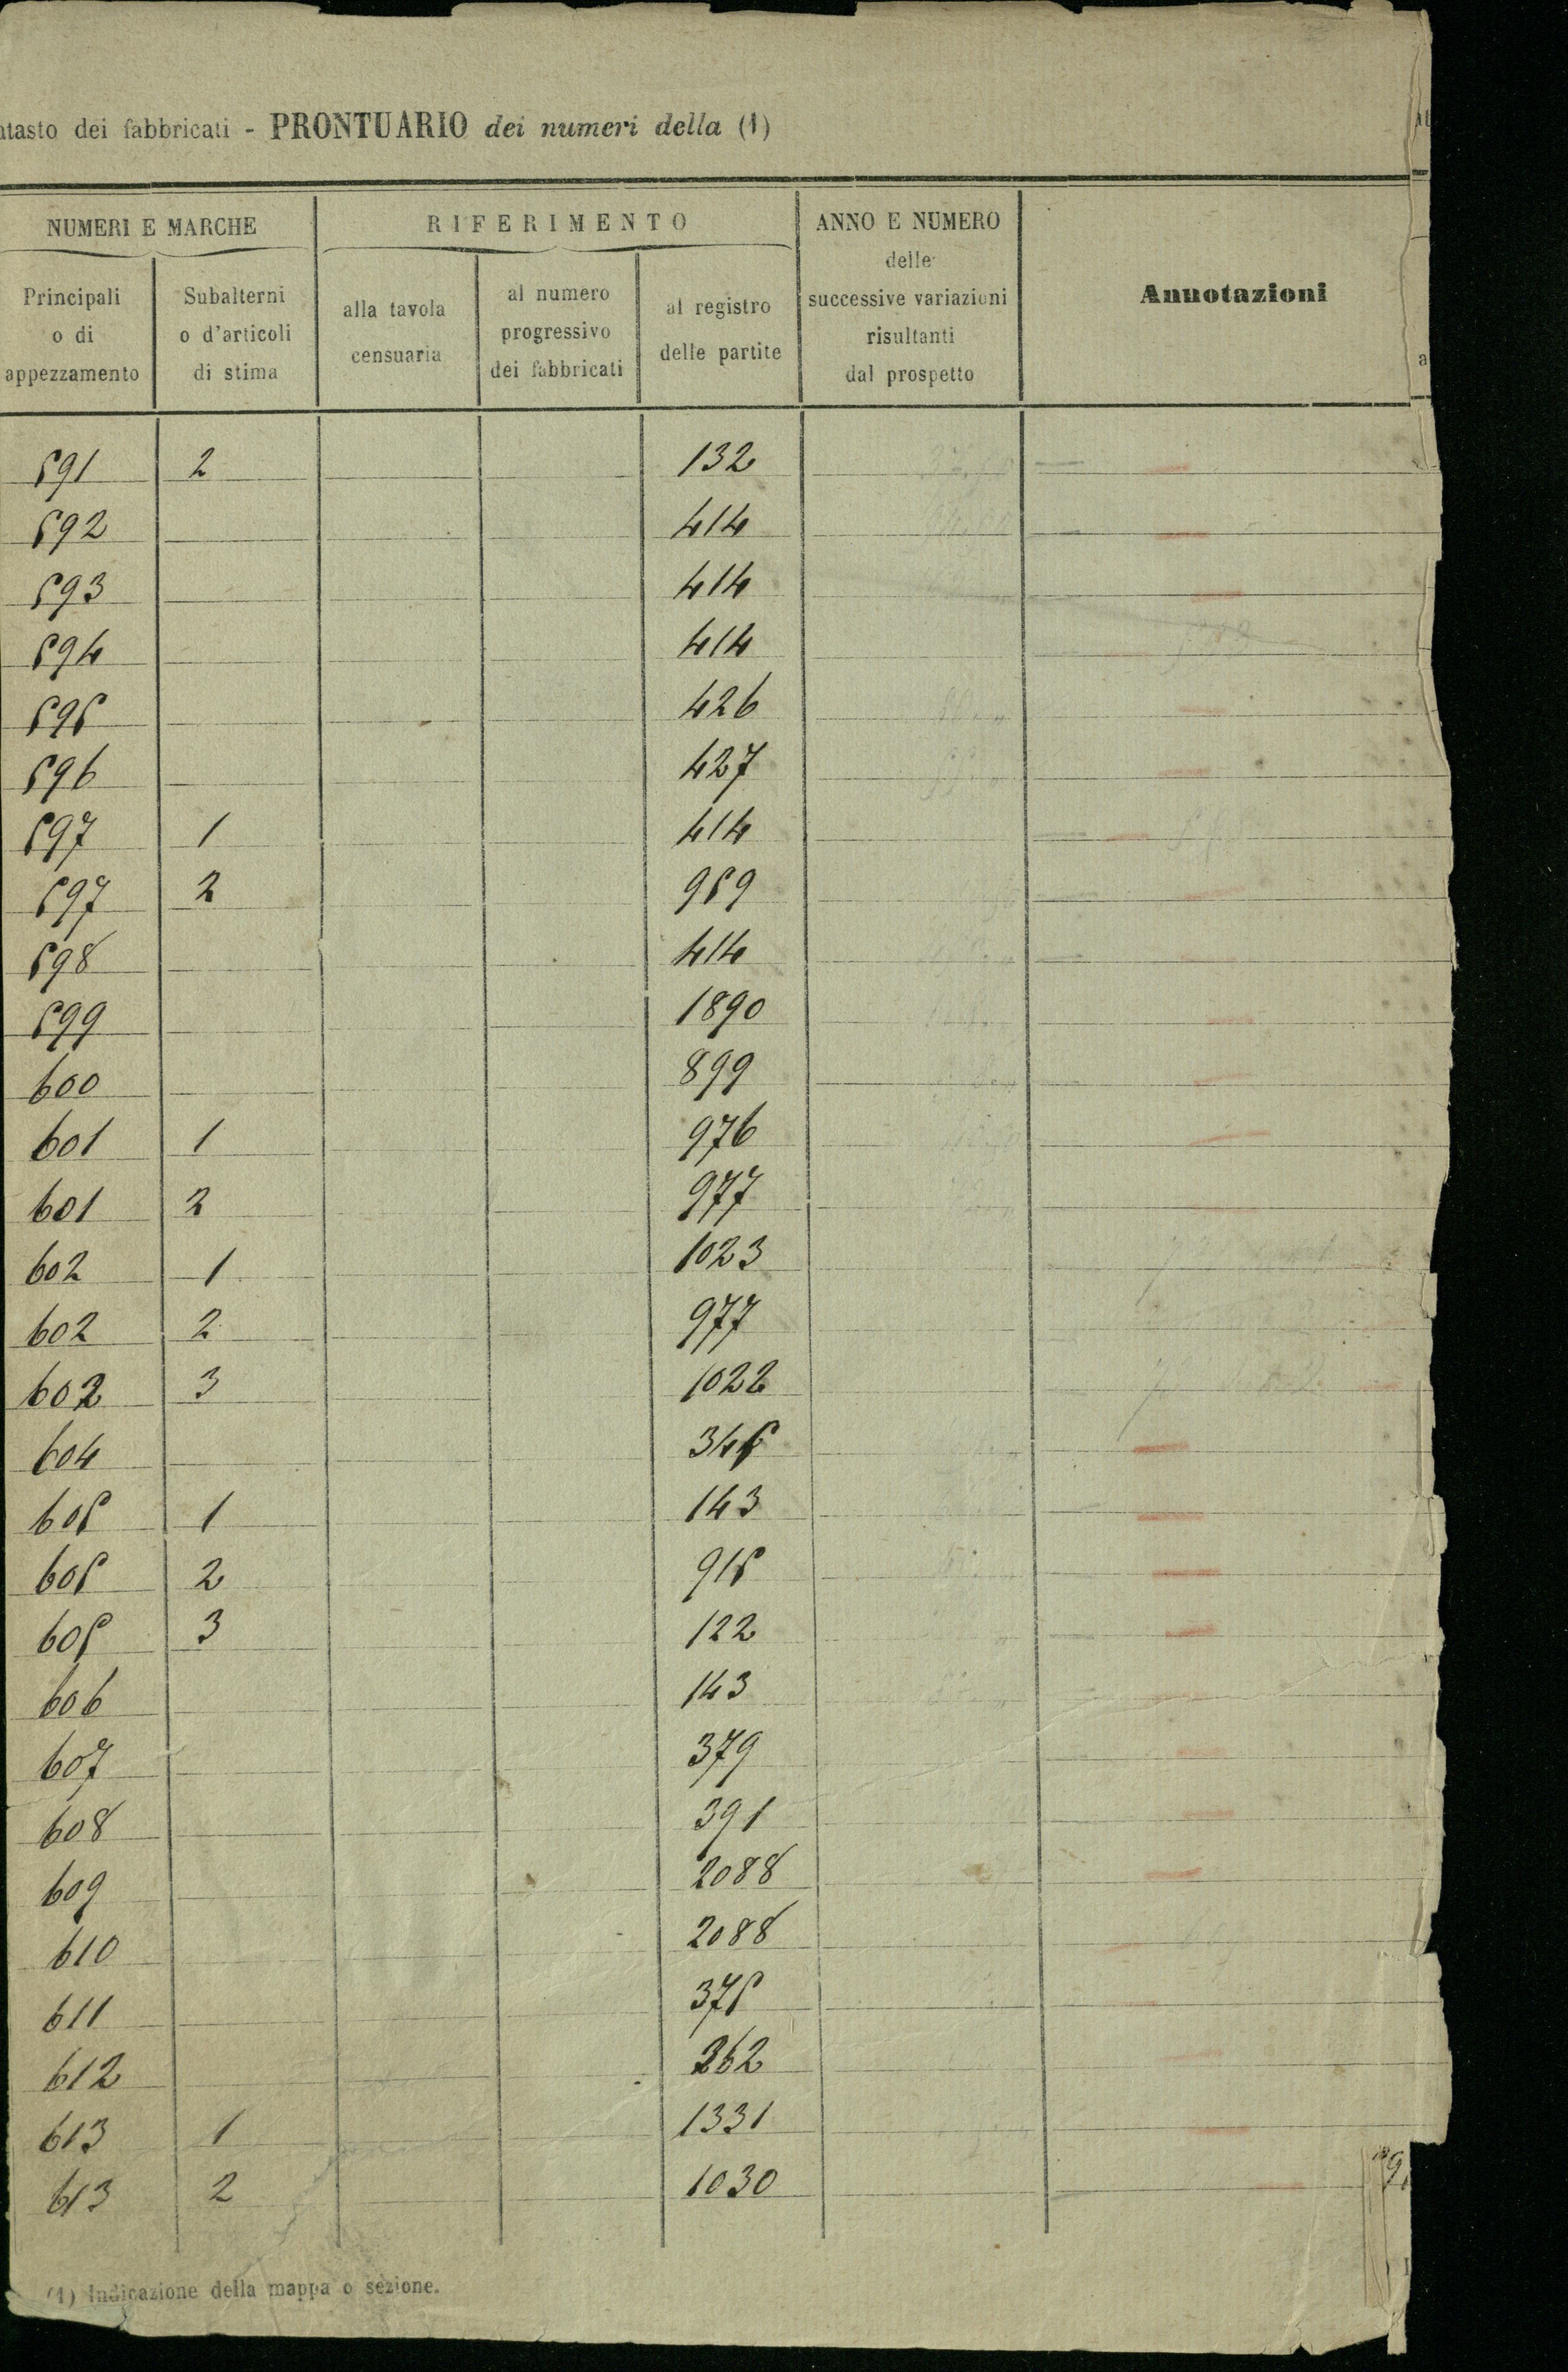 dei fabbricati - PRONTUARIO dei numeri della (1)
NUMERI E MARCHE
RIFERIMENTO
ANNO E NUMERO
delle
successive variazioni
risultanti
dal prospetto
Annotazioni
Principali
o di
appezzamento
Subalterni
o d'articoli
di stima
alla tavola
censuaria
al numero
progressivo
dei fabbricati
al registro
delle partite
591 2 132
592 414
593 414
594 414
595 426
596 427
597 1 414
597 2 959
598 414
599 1890
600 899
601 1 976
601 2 977
602 1 1023
602 2 977
602 3 1022
604 345
605 1 143
605 2 915
605 3 122
606 143
607 379
608 391
609 2088
610 2088
611 375
612 262
613 1 1331
613 2 1030
(1) Indicazione della mappa o sezione.